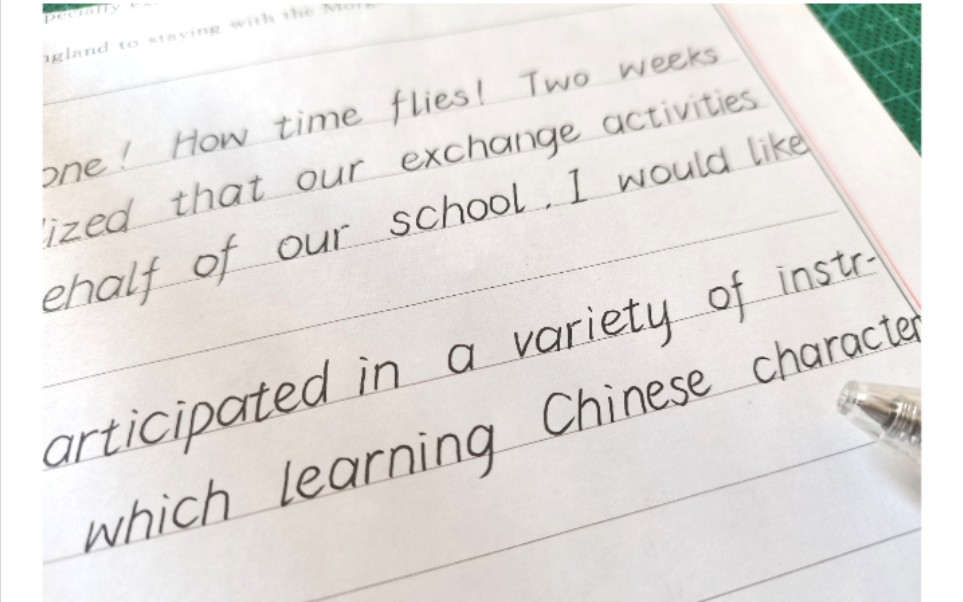 gland to staying with the
one! How time flies! Two weeks
ized that our exchange activities
ehalf of our school. I would like
articipated in a variety of instr-
which learning Chinese character